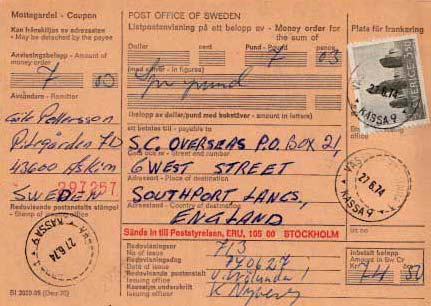 Mottagardel - Coupon
Kan frånskiljas av adressaten
- May be detached by the payee
Anvisningsbelopp - Amount of
money order
7 00
Avsändare - Remitter
Pettersson
43600 Askim
SWEDEN
297257
Redovisande postanstalts stämpel
- Stamp of issuing office
KASSA 9
27.6.74
BI 2020.05 (Dec 70)
POST OFFICE OF SWEDEN
Listpostanvisning på ett belopp av - Money order for
the sum of
Dollar cent Pund - Pound
7 03
(med siffror - in figures)
Sju pund
(belopp av dollar/pund med bokstäver - amount in letters)
att betalas till - payable to
S.C. OVERSEAS P.O. BOX 21,
Gata och nr - Street and number
6 WEST STREET
Adressort - Place of destination
SOUTHPORT LANGS,
Adressland - Country of destination
ENGLAND
Sänds in till Poststyrelsen, ERU, 105 00 STOCKHOLM
Redovisningsnr
No of issue
713
Redovisningsdag
Date of issue
740627
Redovisande postanstalt
Issuing office
V Frölunda 1
Kassörens underskrift
Issuing officer
K Nyberg
Plats för frankering
SVERIGE
27.6.74
KASSA 9
27.6.74
KASSA 9
Inbetalt belopp
Amount in Sw Cr
Kr